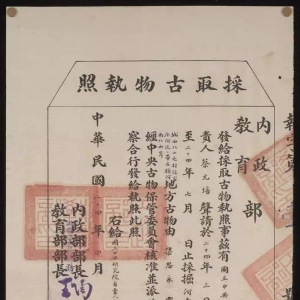 採取古物執照
內政
教育
部
發給採取古物執照事茲有國立中央
責人蔡元培聲請於二十四年三
至二十四年七月 日止採掘河
地方古物由梁思永
經中央古物保管委員會核准並派
察合行發給執照此照
右給國立中央研究院
中華民國二十四年 月
內政部部長
教育部部長王